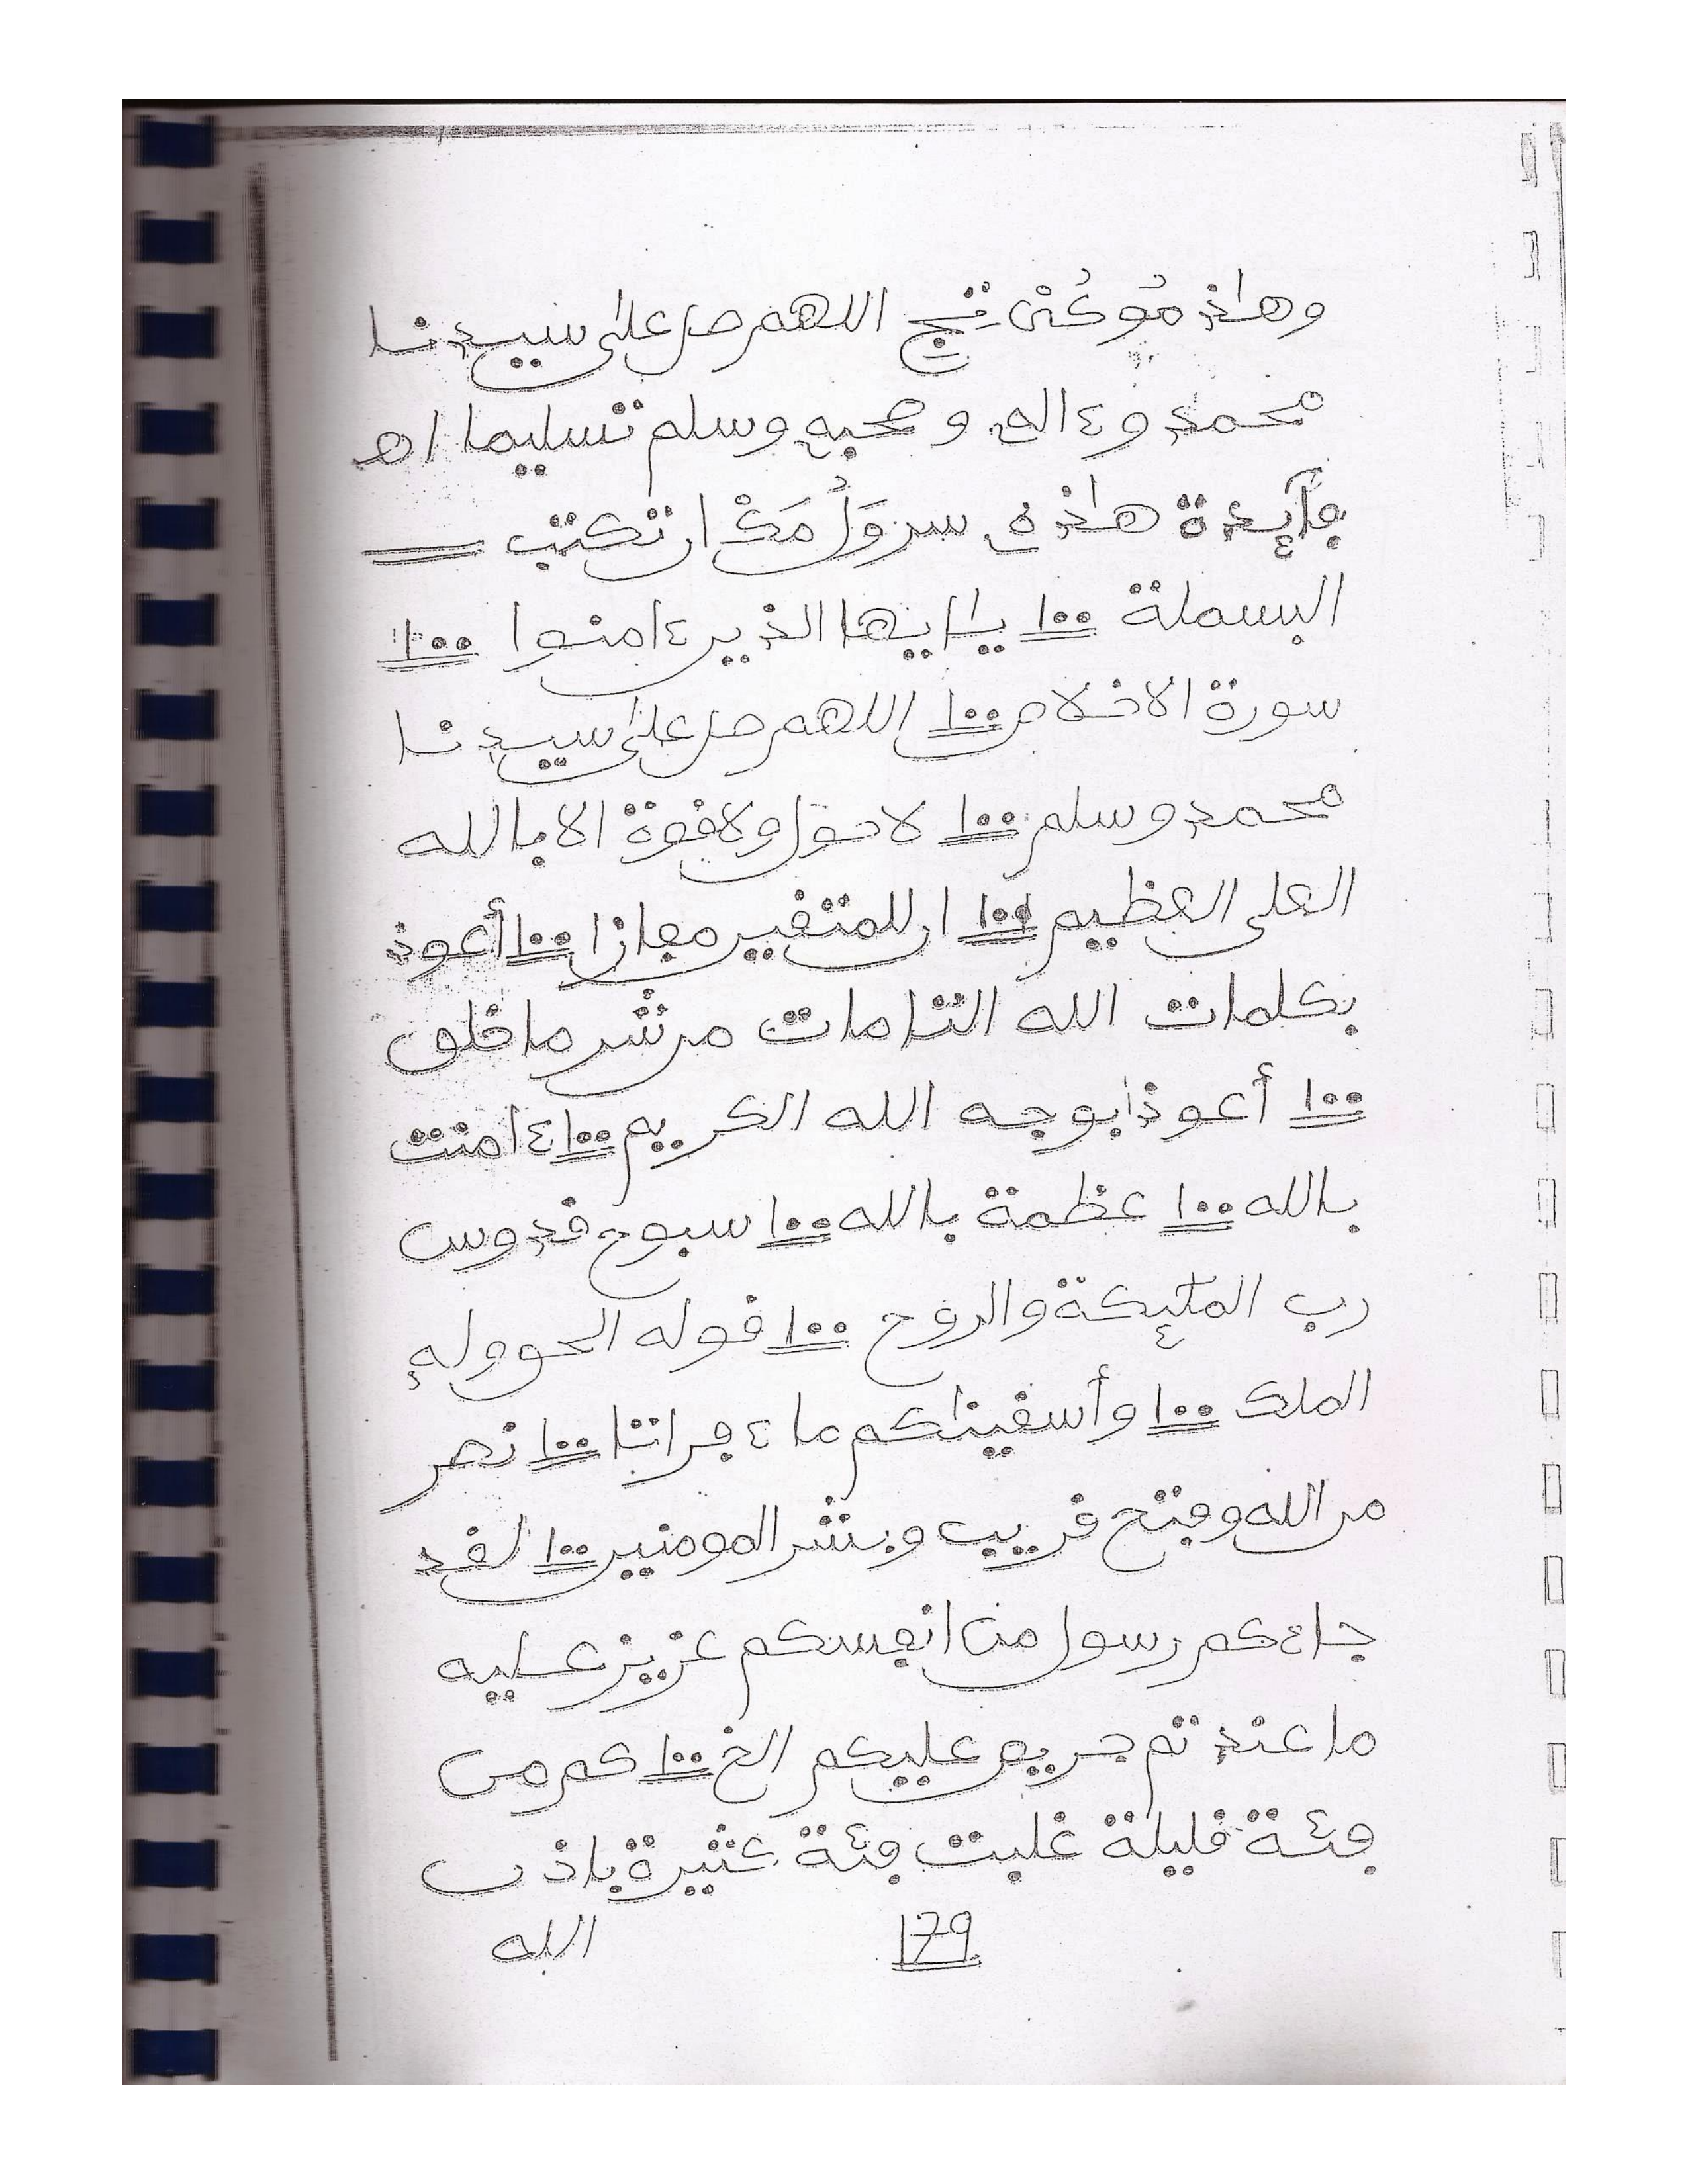 وهاذ مُوكُنْ تِجِ اللهم صل على سيدنا
محمد وءاله وصحبه وسلم تسليما اهـ
فآئدة هاذه سر وَلُ مَكْ ان تكتب
البسملة ١٠٠ يا أيها الذين ءامنوا ١٠٠
سورة الاخلاص ١٠٠ اللهم صل على سيدنا
محمد وسلم ١٠٠ لا حول ولا قوة الا بالله
العلى العظيم ١٠٠ ان للمتقين مفازا ١٠٠ أعوذ
بكلمات الله التامات من شر ما خلق
١٠٠ أعوذ بوجه الله الكريم ١٠٠ ءامنت
بالله ١٠٠ عظمة بالله ١٠٠ سبوح قدوس
رب الملئكة والروح ١٠٠ قوله الحق وله
الملك ١٠٠ وأسقيناكم ماء فراتا ١٠٠ نصر
من الله وفتح قريب وبشر المومنين ١٠٠ لقد
جاءكم رسول من انفسكم عزيز عليه
ما عند تم حريص عليكم الخ ١٠٠ كم من
فئة قليلة غلبت فئة كثيرة باذن
179
الله